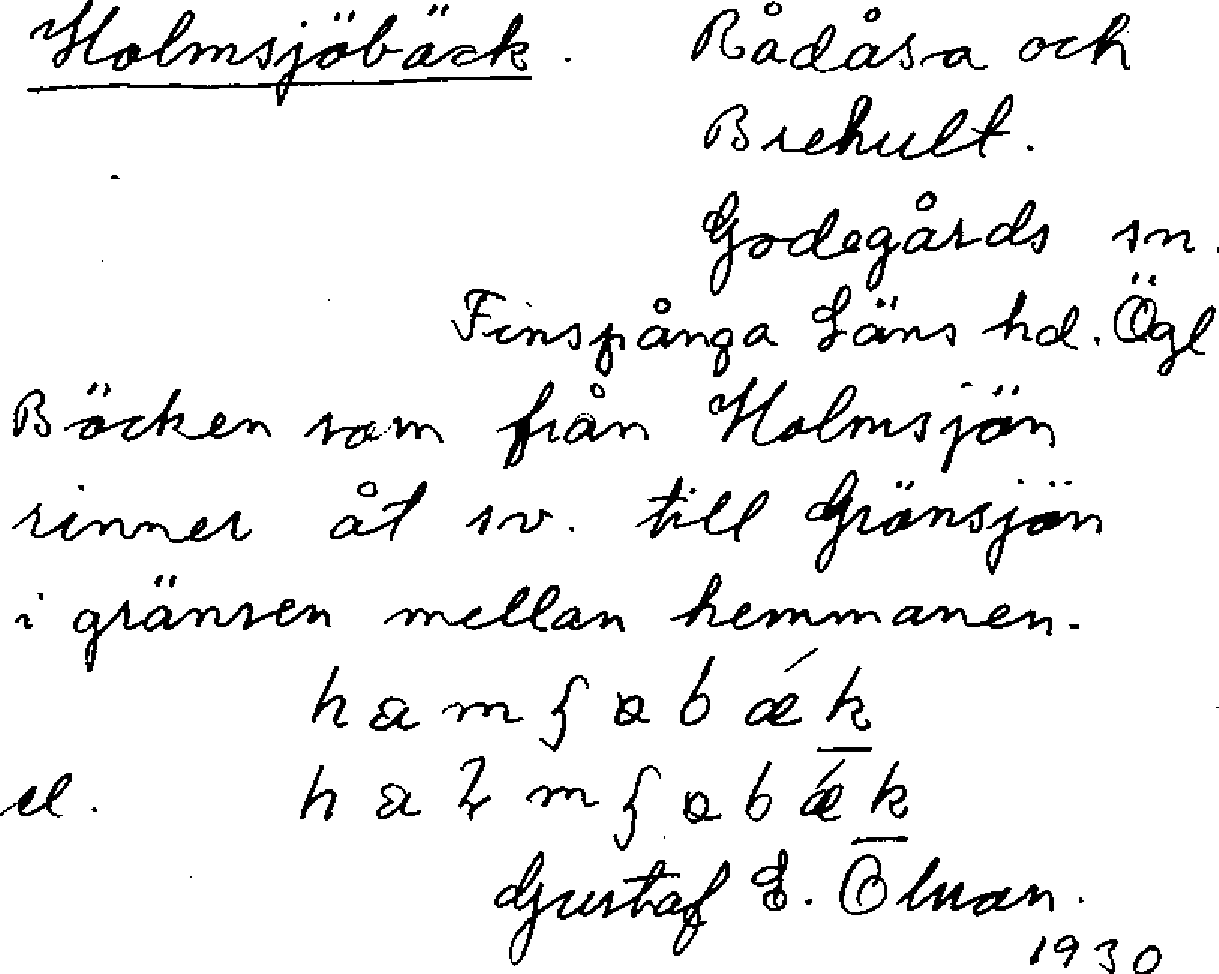 Holmsjöbäck. Rådåsa och
Brehult.
Godegårds sn.
Finspånga Läns hd. Ögl
Bäcken som från Holmsjön
rinner åt sv. till Gränsjön
i gränsen mellan hemmanen.
el.
Gustaf E.
1930